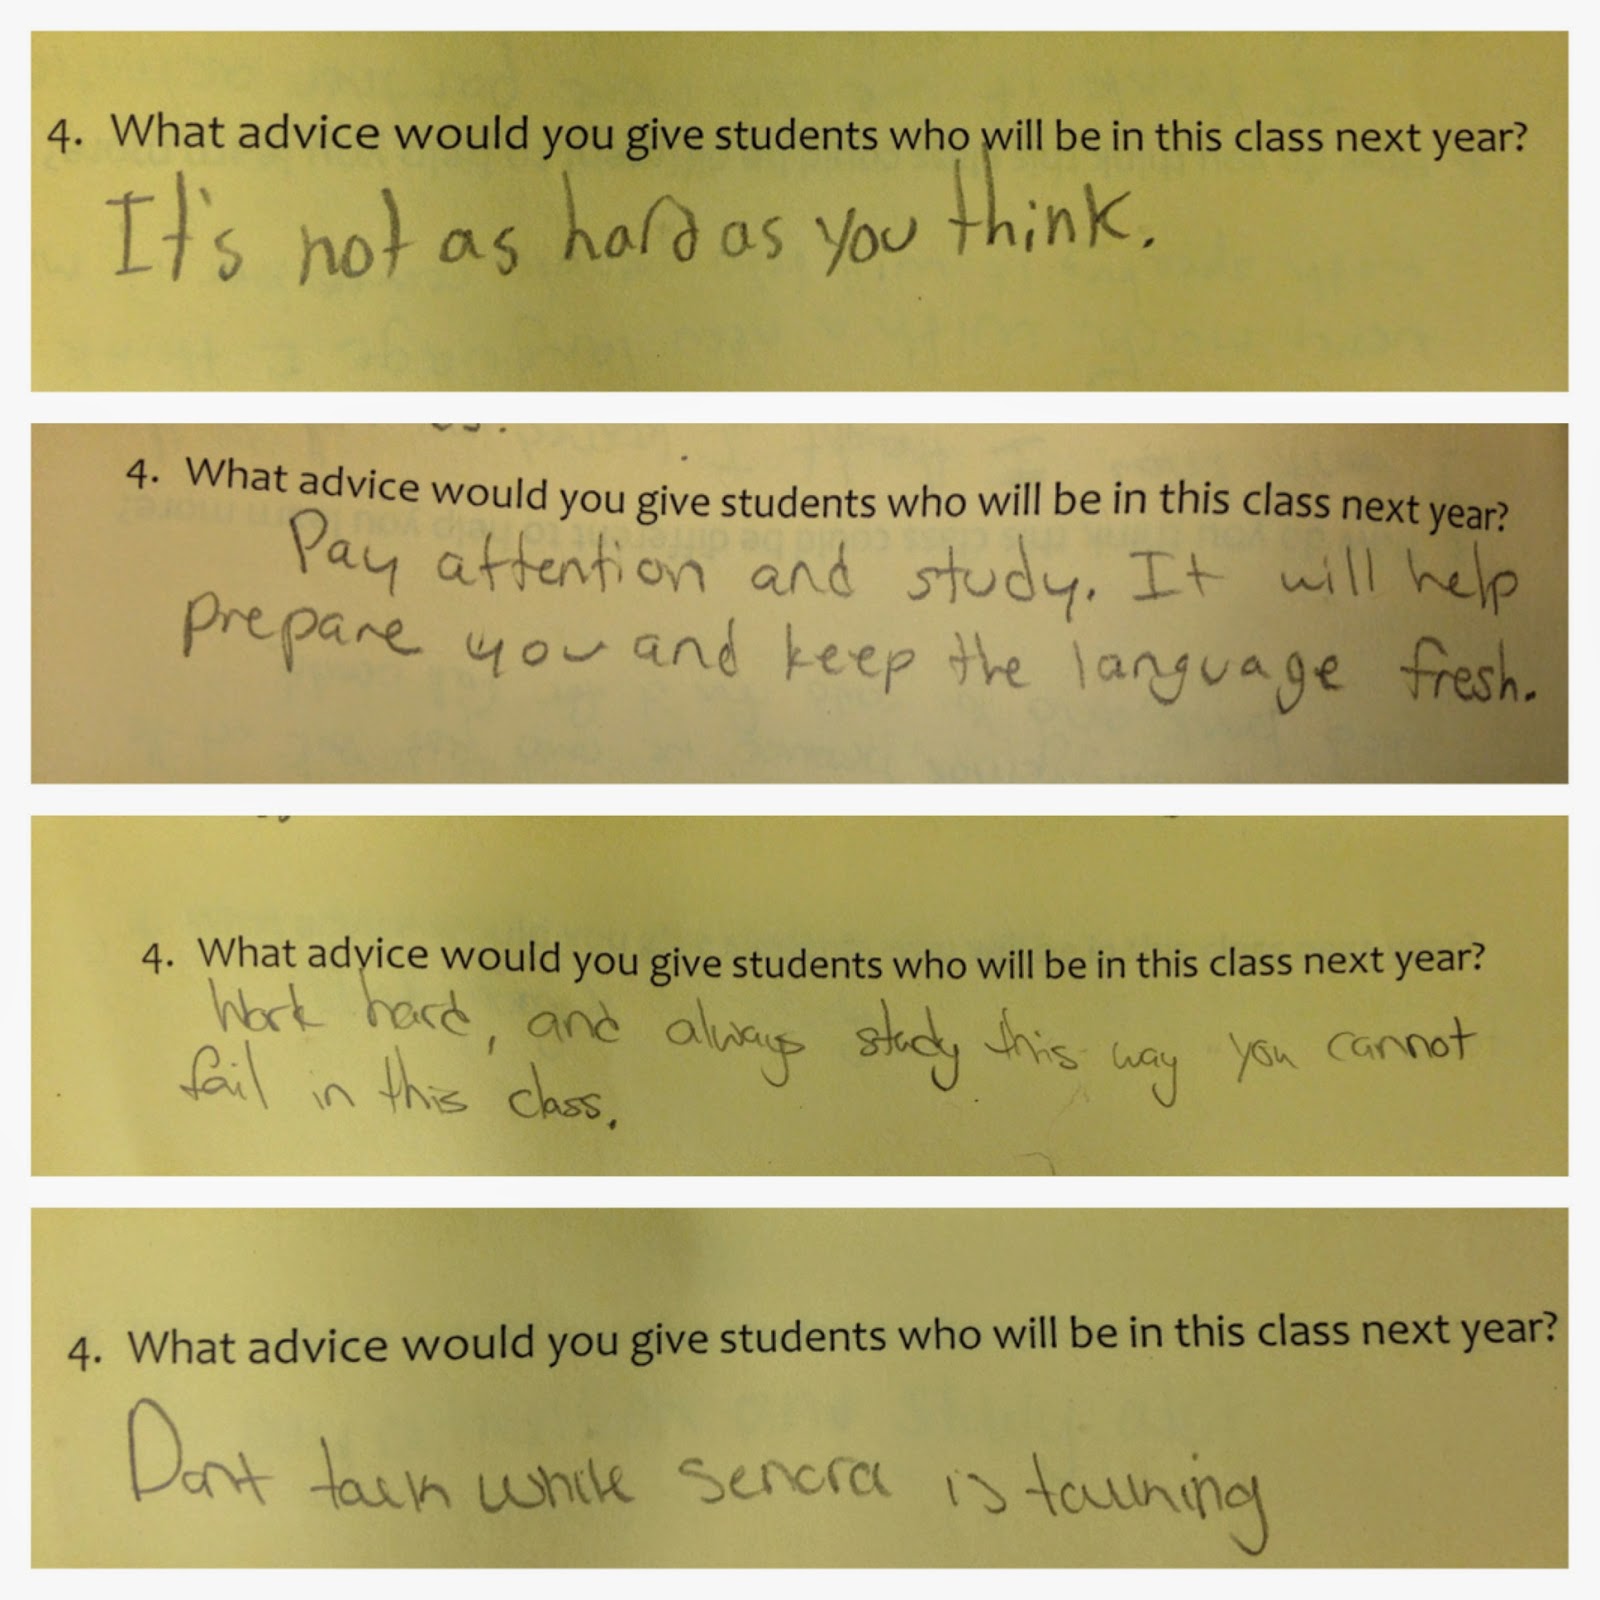 4. What advice would you give students who will be in this class next year?
It's not as hard as you think.
4. What advice would you give students who will be in this class next year?
Pay attention and study. It will help
prepare you and keep the language fresh.
4. What advice would you give students who will be in this class next year?
Work hard, and always study this way you cannot
fail in this class.
4. What advice would you give students who will be in this class next year?
Dont talk while senora is talking